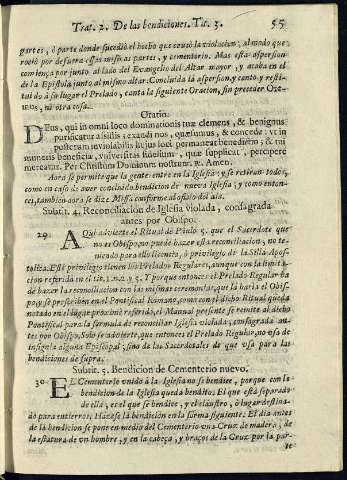 Trat. 2. De las bendiciones. Tit. 3. 55
partes, ò parte donde sucediò el hecho que causò la violacion; al modo que
roviò por defuera essas mismas partes, y cementerio. Mas esta aspersion
comiença por junto al lado del Evangelio del Altar mayor, y acaba en el
de la Epistola junto al mismo altar. Concluida la aspersion, y canto y restituido
do à su lugar el Prelado, canta la siguiente Oracion, sin preceder Ore-
mus, ni otra cosa.
Oratio.
DEus, qui in omni loco dominationis tuæ clemens, & benignus
purificator assistis: exaudi nos, quæsumus, & concede: vt in
posterum inviolabilis hujus loci permaneat benedictio; & tui
muneris beneficia, vniversitas fidelium, quæ supplicat, percipere
mereatur. Per Christum Dominum nostrum. ℟. Amen.
Aora se permite que la gente entre en la Iglesia; y se retiran todos,
como en caso de aver concluido bendicion de nueva Iglesia; y como enton-
ces, tambien aora se dize Missa conforme al oficio del dia.
Subtit. 4. Reconciliacion de Iglesia violada, consagrada
antes por Obispo.
29. AQui advierte el Ritual de Paulo 5. que el Sacerdote que
no es Obispo, no puede hazer esta reconciliacion, no te-
niendo para ello licencia, ò privilegio de la Silla Apos-
tolica. Este privilegio tienen los Prelados Regulares, aunque con la limita-
cion referida en el tit. 1. n. 2. y 5. Y porque entonces el Prelado Regular ha
de hazer la reconciliacion con las mismas ceremonias, que la haria el Obis-
po, y se prescriben en el Pontifical Romano, como con el dicho Ritual queda
notado en el lugar proximè referido, el Manual presente se remite al dicho
Pontifical para la formula de reconciliar Iglesia violada, consagrada an-
tes por Obispo. Solo se advierte, que entonces el Prelado Regular, no vsa de
insignia alguna Episcopal; sino de las Sacerdotales de que vsa para las
bendiciones de supra.
Subtit. 5. Bendicion de Cementerio nuevo.
30. EL Cementerio vnido à la Iglesia no se bendice, porque con la
bendicion de la Iglesia queda bendito. El que està separado
de ella, es el que se bendice, y el claustro, ò lugar destina-
do para entierros. Hazese la bendicion en la forma siguiente. El dia antes
de la bendicion se pone en medio del Cementerio vna Cruz de madera, de
la estatura de vn hombre, y en la cabeça, y braços de la Cruz por la par-
te